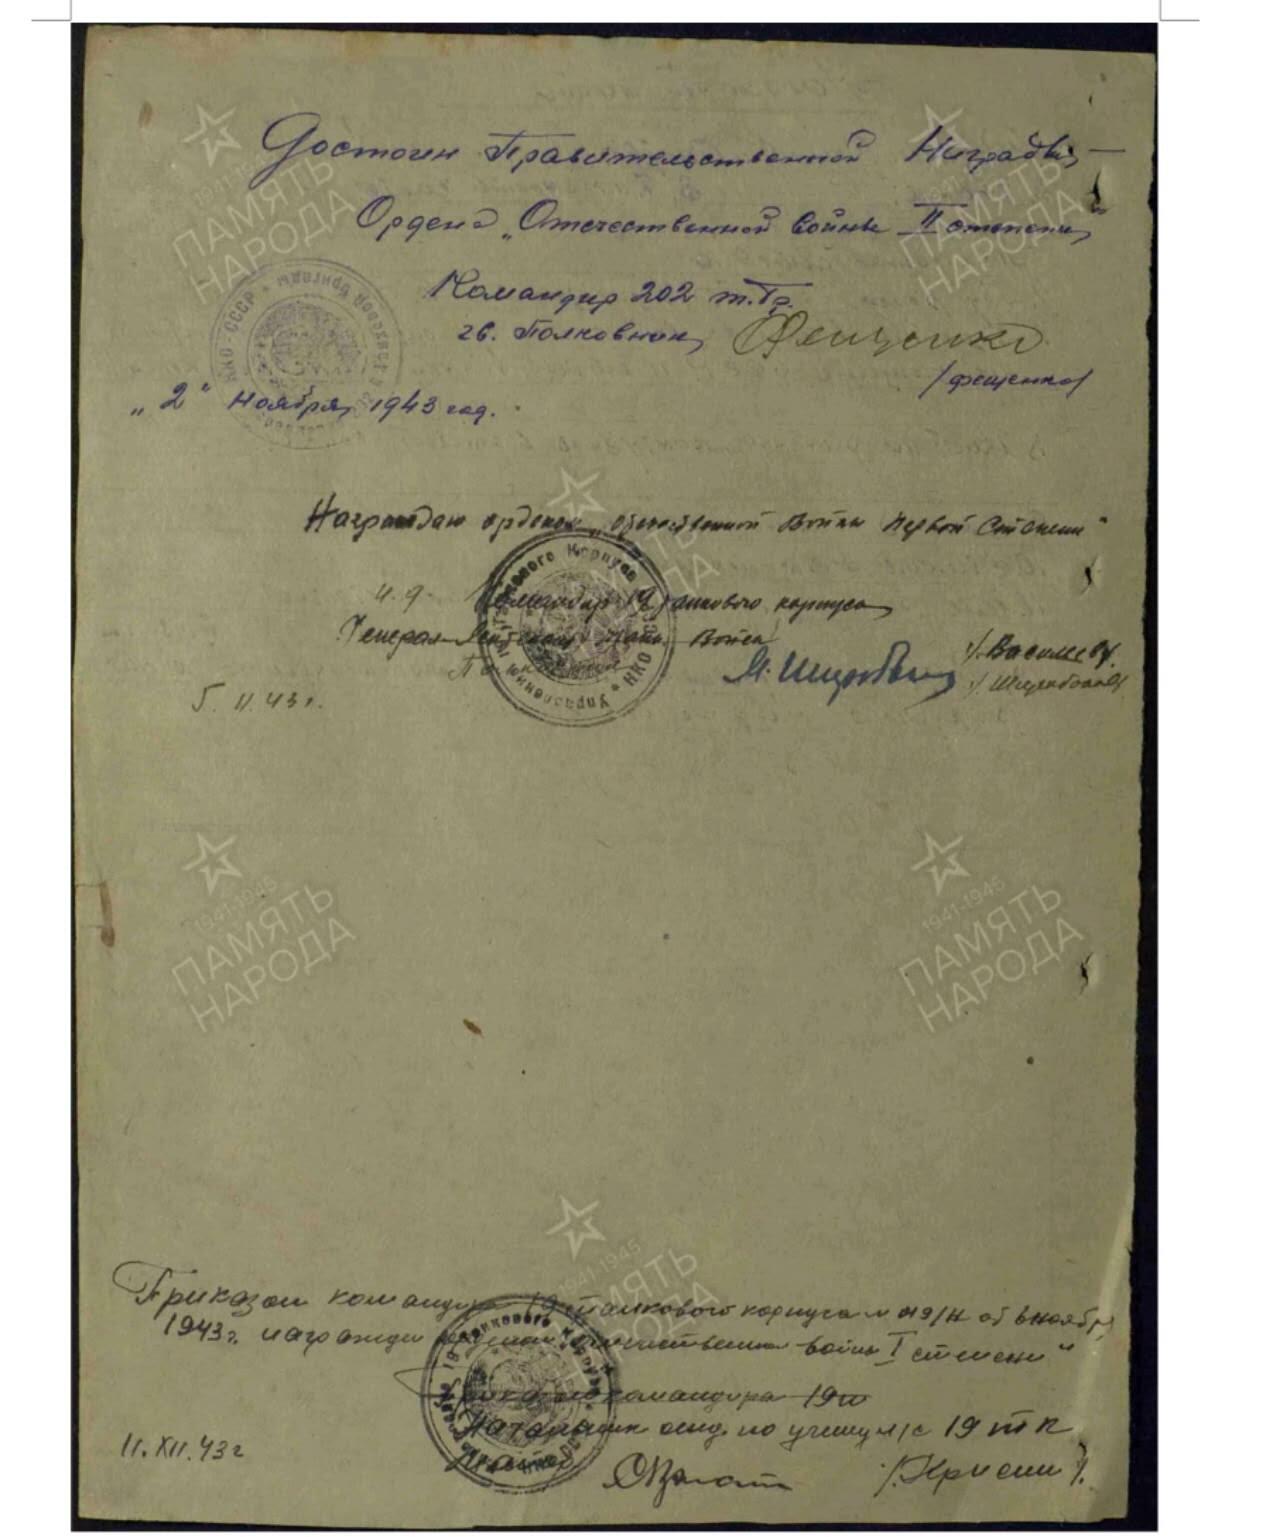 Достоин Правительственной Награды —
Ордена „Отечественной Войны II степени"
Командир 202 т.Бр.
гв. Полковник Фещенко
/Фещенко/
„2" ноября 1943 год.
НКО-СССР
Награждаю орденом „Отечественной Войны Первой Степени"
и.д. Командир 19 танкового корпуса
Генерал-Лейтенант Танк. Войск /Васильев/
Полковник
5.11.43 г.
Управление 19 Танкового Корпуса НКО
Приказом командира 19 танкового корпуса № 019/Н от 6 ноября
1943 г. награжден орденом Отечественная война I степени"
Приказом командира 19т
Начальник отд. по учету л/с 19 ТК
11.XII.43 г
ПАМЯТЬ НАРОДА
1941-1945
ПАМЯТЬ НАРОДА
1941-1945
ПАМЯТЬ НАРОДА